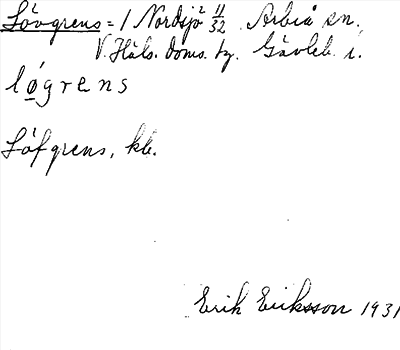 Lövgrens = 1 Nordsjö² 11/32 Arbrå sn.
V. Häls. doms. hg. Gävleb. l.
lǿgrens
Löfgrens, kb.
Erik Eriksson 1931